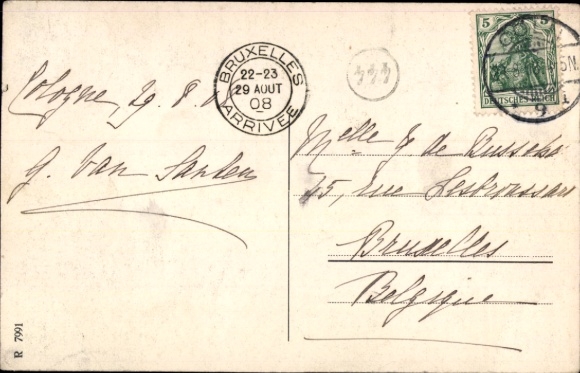 Cologne, 29. 8. 08
G. Van Santen
BRUXELLES
22-23
29 AOUT
08
ARRIVÉE
5 5
DEUTSCHES REICH
Melle G de
45, rue Lesbroussart
Bruxelles
Belgique
R 7991